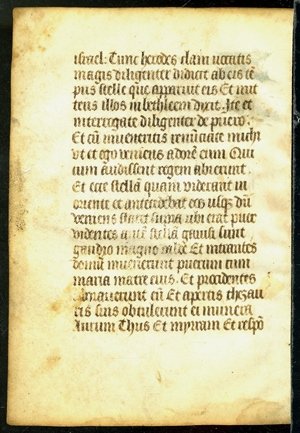 israel: Tunc herodes clam uocatis
magis diligenter didicit ab eis tē
pus stelle que apparuit eis Et mit
tens illos in bethleem dixit. Ite et
interrogate diligenter de puero.
Et cū inueneritis renūciate michi
vt et ego veniens adorē eum Qui
cum audissent regem abierunt.
Et ecce stellā quam viderant in
oriente an antecedebat eos usqz dū
veniens staret supra ubi erat puer
videntes autē stellā gauisi sunt
gaudio magno valde Et intrantes
domū inuenerunt puerum cum
maria matre eius. Et procidentes
adorauerunt eū Et apertis thezau
ris suis obtulerunt ei munera
Aurum Thus Et myrram Et respō